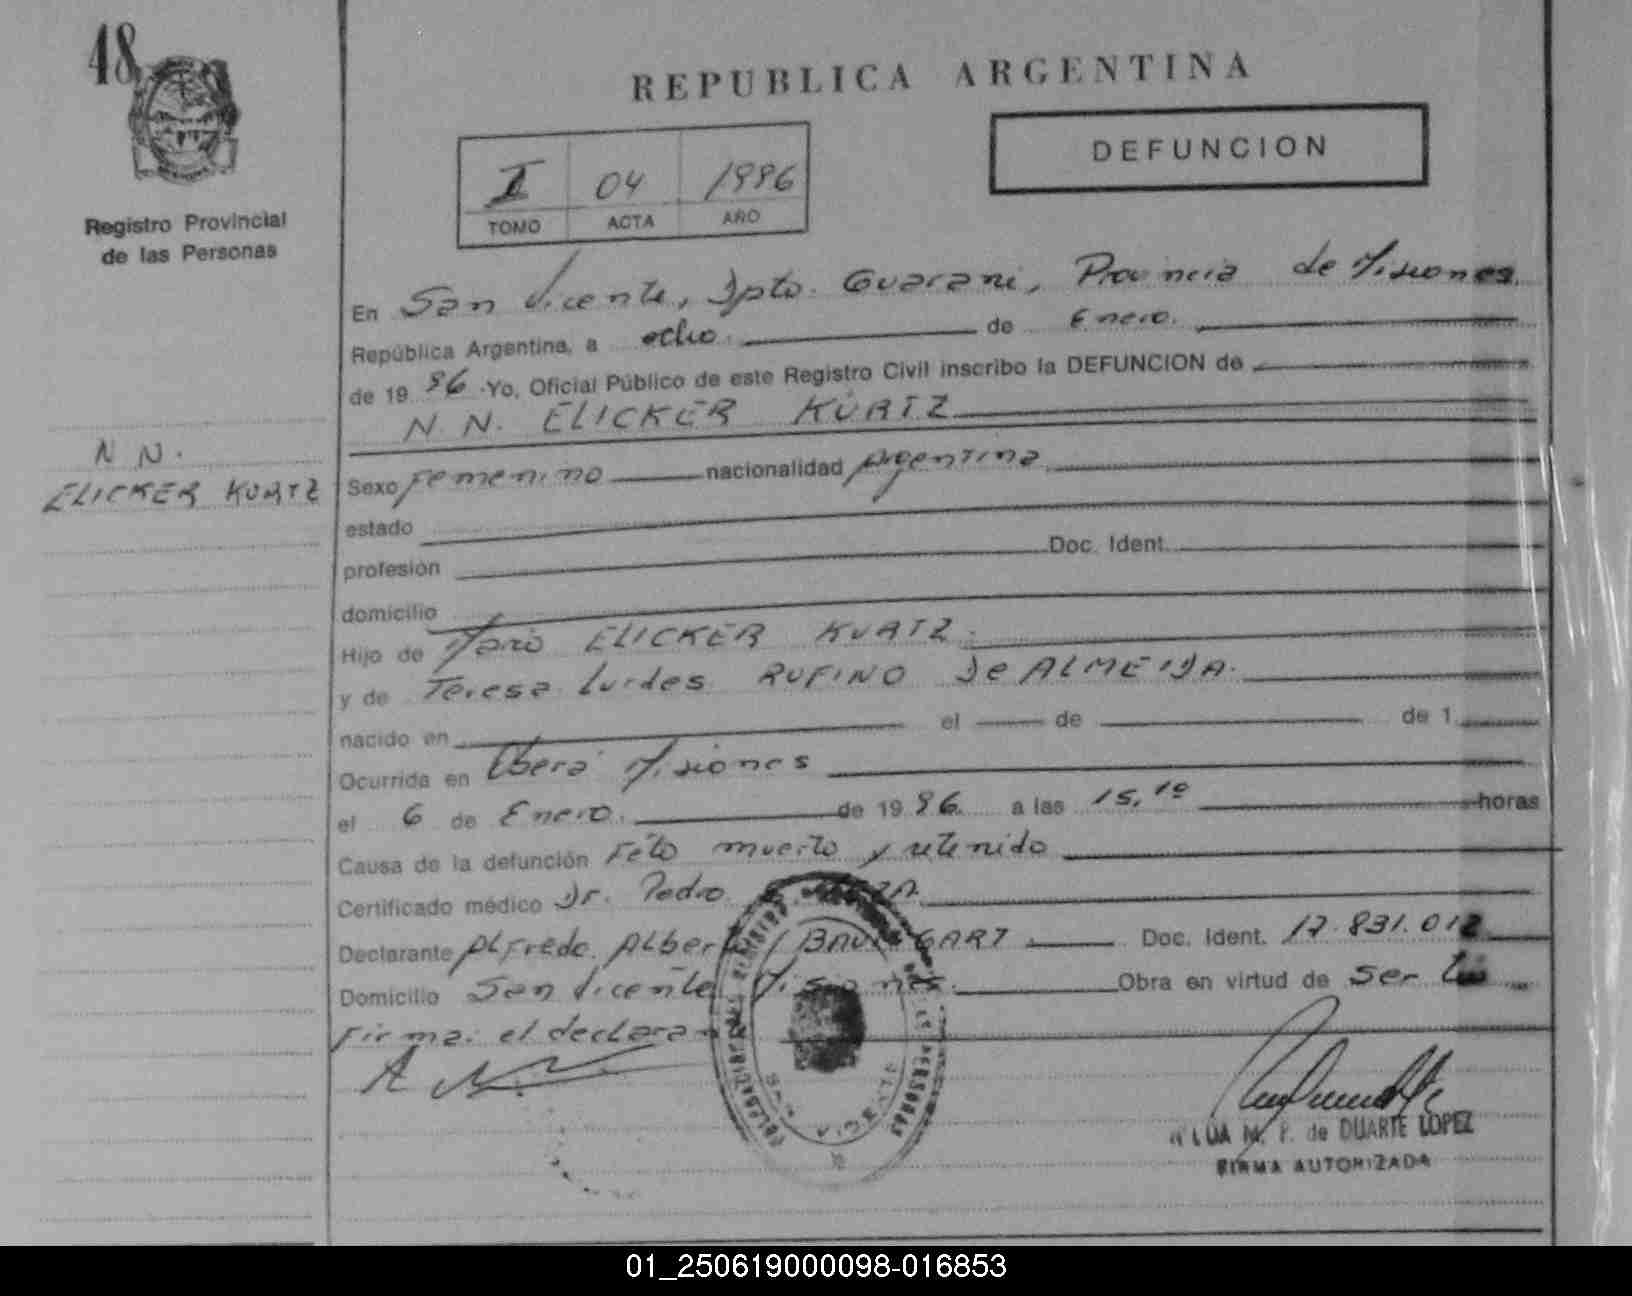 48
REPUBLICA ARGENTINA
DEFUNCION
I 04 1996
TOMO ACTA AÑO
Registro Provincial
de las Personas
En San Vicente, Dpto. Guaraní, Provincia de Misiones
República Argentina, a ocho de Enero.
de 19 96 Yo, Oficial Público de este Registro Civil inscribo la DEFUNCION de
N. N. ELICKER KURTZ
N N.
ELICKER KURTZ
Sexo Femenino nacionalidad Argentina
estado
profesión Doc. Ident.
domicilio
Hijo de Mario ELICKER KURTZ.
y de Teresa Lurdes RUFINO de ALMEIDA.
nacido en el de de 1
Ocurrida en Oberá Misiones
el 6 de Enero. de 19 96. a las 15,10 horas
Causa de la defunción Feto muerto y retenido
Certificado médico Dr. Pedro
Declarante Alfredo Albert BAUMGART Doc. Ident. 17.831.012
Domicilio San Vicente Misiones. Obra en virtud de Ser
Firma: el declaran
SAN VICENTE
DE LAS PERSONAS
M. F. de DUARTE LOPEZ
FIRMA AUTORIZADA
01_250619000098-016853